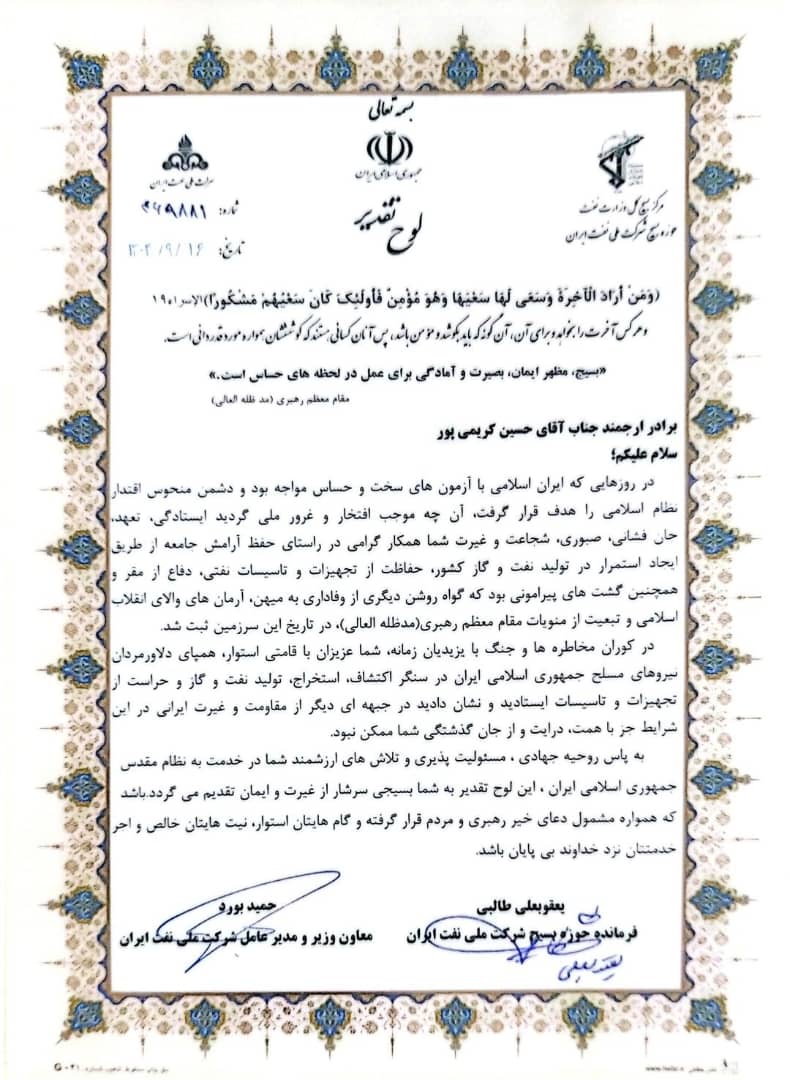 بسمه تعالی
جمهوری اسلامی ایران
شرکت ملی نفت ایران
مرکز بسیج کل وزارت نفت
حوزه بسیج شرکت ملی نفت ایران
لوح تقدیر
شماره:
تاریخ: ۱۴۰۴/۹/۱۶
(وَمَنْ أَرَادَ الْآخِرَةَ وَسَعَى لَهَا سَعْيَهَا وَهُوَ مُؤْمِنٌ فَأُولَئِكَ كَانَ سَعْيُهُمْ مَشْكُورًا)الاسراء ۱۹
و هر کس آخرت را بخواهد و برای آن، آن گونه که باید بکوشد و مؤمن باشد، پس آنان کسانی هستند که کوششان همواره مورد قدردانی است.
«بسیج، مظهر ایمان، بصیرت و آمادگی برای عمل در لحظه های حساس است.»
مقام معظم رهبری (مد ظله العالی)
برادر ارجمند جناب آقای حسین کریمی پور
سلام علیکم؛
در روزهایی که ایران اسلامی با آزمون های سخت و حساس مواجه بود و دشمن منحوس اقتدار
نظام اسلامی را هدف قرار گرفت، آن چه موجب افتخار و غرور ملی گردید ایستادگی، تعهد،
جان فشانی، صبوری، شجاعت و غیرت شما همکار گرامی در راستای حفظ آرامش جامعه از طریق
ایجاد استمرار در تولید نفت و گاز کشور، حفاظت از تجهیزات و تاسیسات نفتی، دفاع از مقر و
همچنین گشت های پیرامونی بود که گواه روشن دیگری از وفاداری به میهن، آرمان های والای انقلاب
اسلامی و تبعیت از منویات مقام معظم رهبری(مدظله العالی)، در تاریخ این سرزمین ثبت شد.
در کوران مخاطره ها و جنگ با یزیدیان زمانه، شما عزیزان با قامتی استوار، همپای دلاورمردان
نیروهای مسلح جمهوری اسلامی ایران در سنگر اکتشاف، استخراج، تولید نفت و گاز و حراست از
تجهیزات و تاسیسات ایستادید و نشان دادید در جبهه ای دیگر از مقاومت و غیرت ایرانی در این
شرایط جز با همت، درایت و از جان گذشتگی شما ممکن نبود.
به پاس روحیه جهادی ، مسئولیت پذیری و تلاش های ارزشمند شما در خدمت به نظام مقدس
جمهوری اسلامی ایران ، این لوح تقدیر به شما بسیجی سرشار از غیرت و ایمان تقدیم می گردد.باشد
که همواره مشمول دعای خیر رهبری و مردم قرار گرفته و گام هایتان استوار، نیت هایتان خالص و اجر
خدمتتان نزد خداوند بی پایان باشد.
یعقوبعلی طالبی
فرمانده حوزه بسیج شرکت ملی نفت ایران
حمید بورد
معاون وزیر و مدیر عامل شرکت ملی نفت ایران